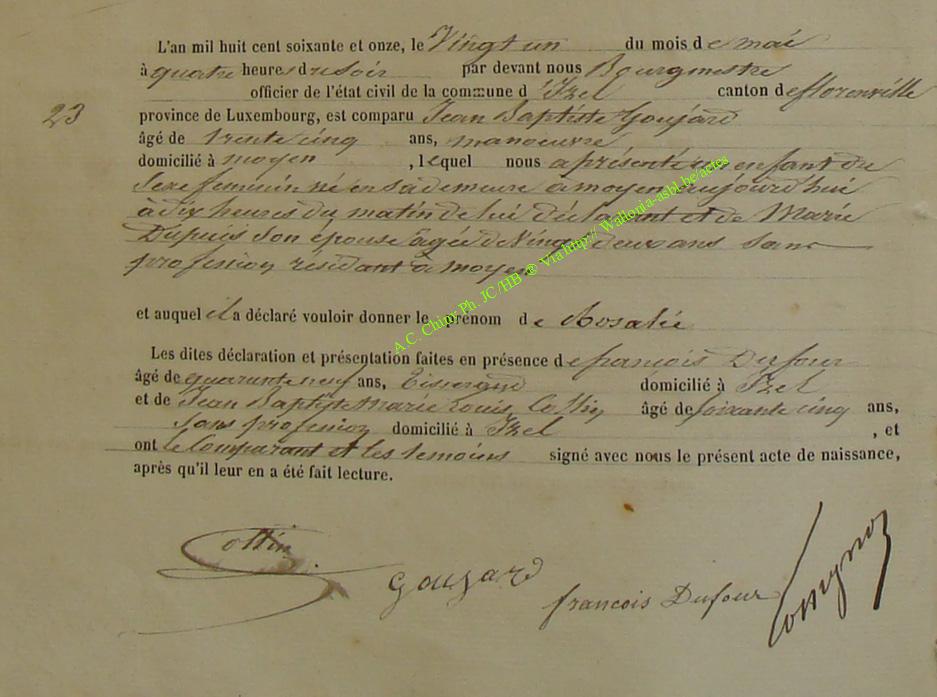 L'an mil huit cent soixante et onze, le Vingt un du mois de mai
à quatre heures du soir par devant nous Bourgmestre
officier de l'état civil de la commune d'Izel canton de florenville
23
province de Luxembourg, est comparu Jean Baptiste Goujard
âgé de trente cinq ans, manoeuvre
domicilié à moyen, lequel nous a présenté un enfant du
Sexe feminin né en sa demeure a moyen aujourd'hui
à dix heures du matin de lui déclarant et de Marie
Dupuis son épouse âgée de Vingt deux ans sans
profession résidant a moyen
et auquel il a déclaré vouloir donner le prénom de Rosalie
Les dites déclaration et présentation faites en présence de francois Dufour
âgé de quarante neuf ans, Tisserand domicilié à Izel
et de Jean Baptiste Marie Louis Cottin âgé de soixante cinq ans,
sans profession domicilié à Izel, et
ont le Comparant et les temoins signé avec nous le présent acte de naissance,
après qu'il leur en a été fait lecture.
Cottin
Goujard
francois Dufour
A.C. Chiny Ph. JC/HB ® Via http// Wallonia-asbl.be/actes